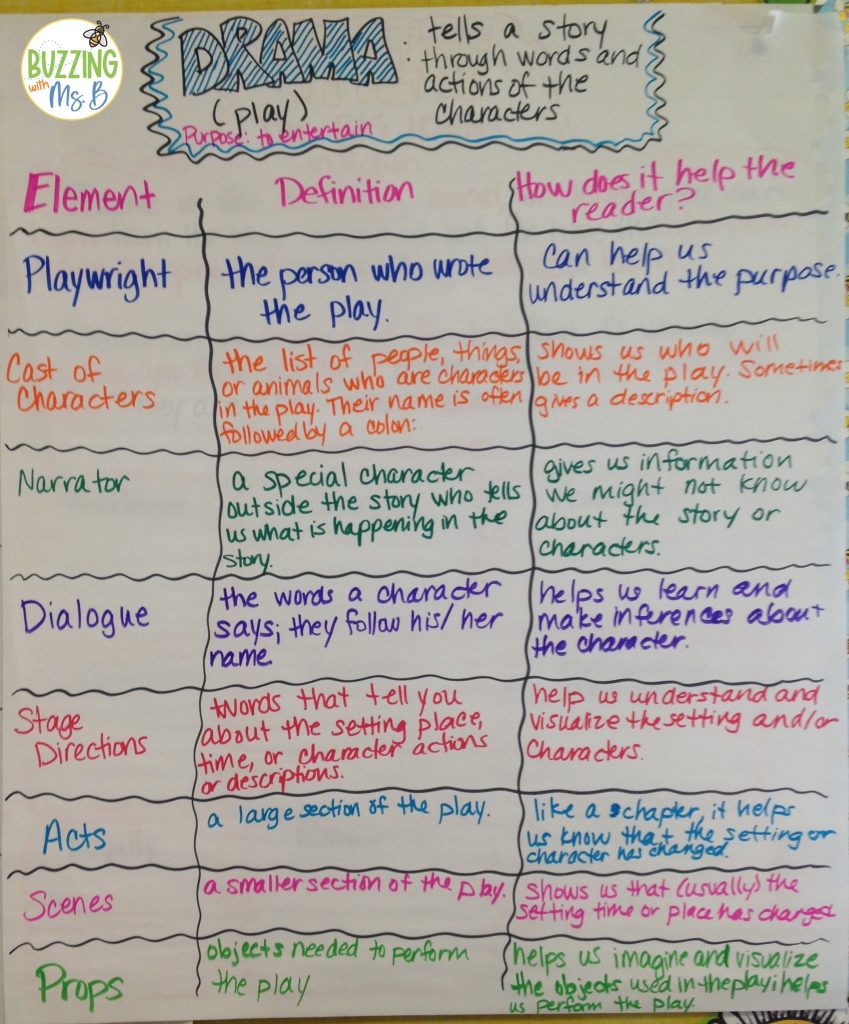 BUZZING
with
Ms. B
DRAMA
(play)
Purpose: to entertain
: tells a story
through words and
actions of the
characters
Element
Definition
How does it help the
reader?
Playwright
the person who wrote
the play.
can help us
understand the purpose.
Cast of
Characters
the list of people, things,
or animals who are characters
in the play. Their name is often
followed by a colon:
shows us who will
be in the play. Sometimes
gives a description.
Narrator
a special character
outside the story who tells
us what is happening in the
story.
gives us information
we might not know
about the story or
characters.
Dialogue
the words a character
says; they follow his/her
name.
helps us learn and
make inferences about
the character.
Stage
Directions
words that tell you
about the setting place,
time, or character actions
or descriptions.
help us understand and
visualize the setting and/or
characters.
Acts
a large section of the play.
like a chapter, it helps
us know that the setting or
character has changed.
Scenes
a smaller section of the play.
shows us that (usually) the
setting time or place has changed
Props
objects needed to perform
the play
helps us imagine and visualize
the objects used in the play; helps
us perform the play.